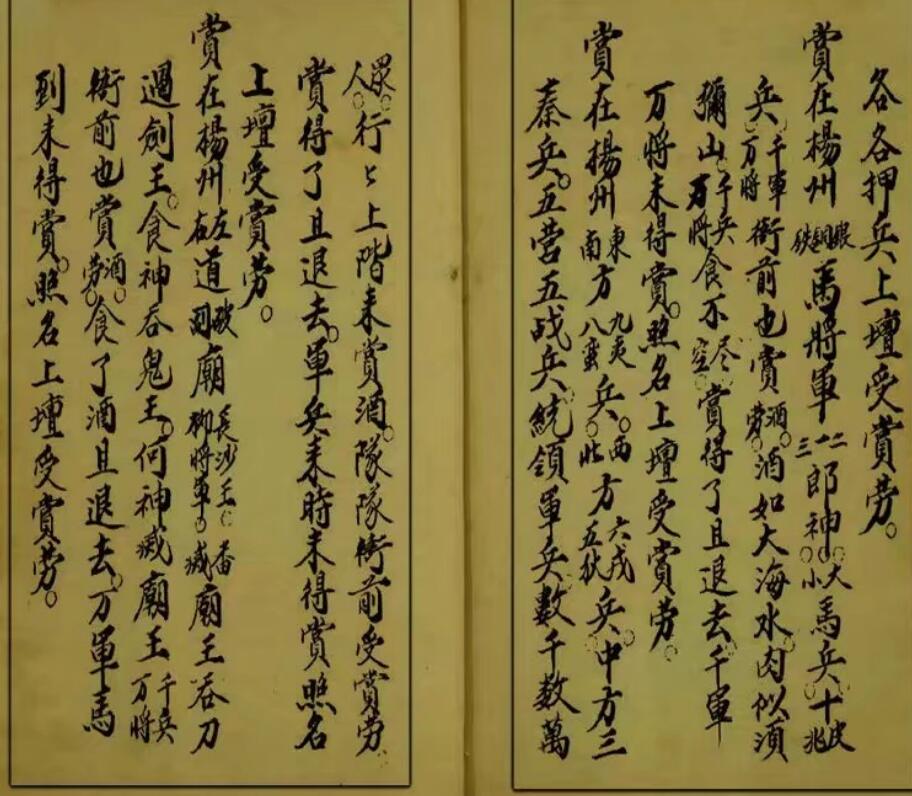 各各押兵上壇受賞劳。
賞在楊州銀銅鉄馬將軍二一三郎神大小馬兵十
兵千軍万將衙前也賞酒劳。酒如大海水。肉似須
彌山。千兵万將食不尽空賞得了且退去千軍
万將未得賞。照名上壇受賞劳。
賞在揚州東南方九夷八蛮兵。西北方六戎五狄兵。中方三
秦兵。五营五战兵。統領軍兵數千數萬
眾人行〻上階来賞酒。隊隊衙前受賞劳
賞得了且退去。軍兵来時未得賞照名
上壇受賞劳。
賞在楊州左右道破廟長沙王柳將軍。番滅廟王吞刀
過劍王。食神吞鬼王。何神滅廟王千兵万將
衙前也賞酒劳。食了酒且退去。万軍馬
到未得賞。照名上壇受賞劳。